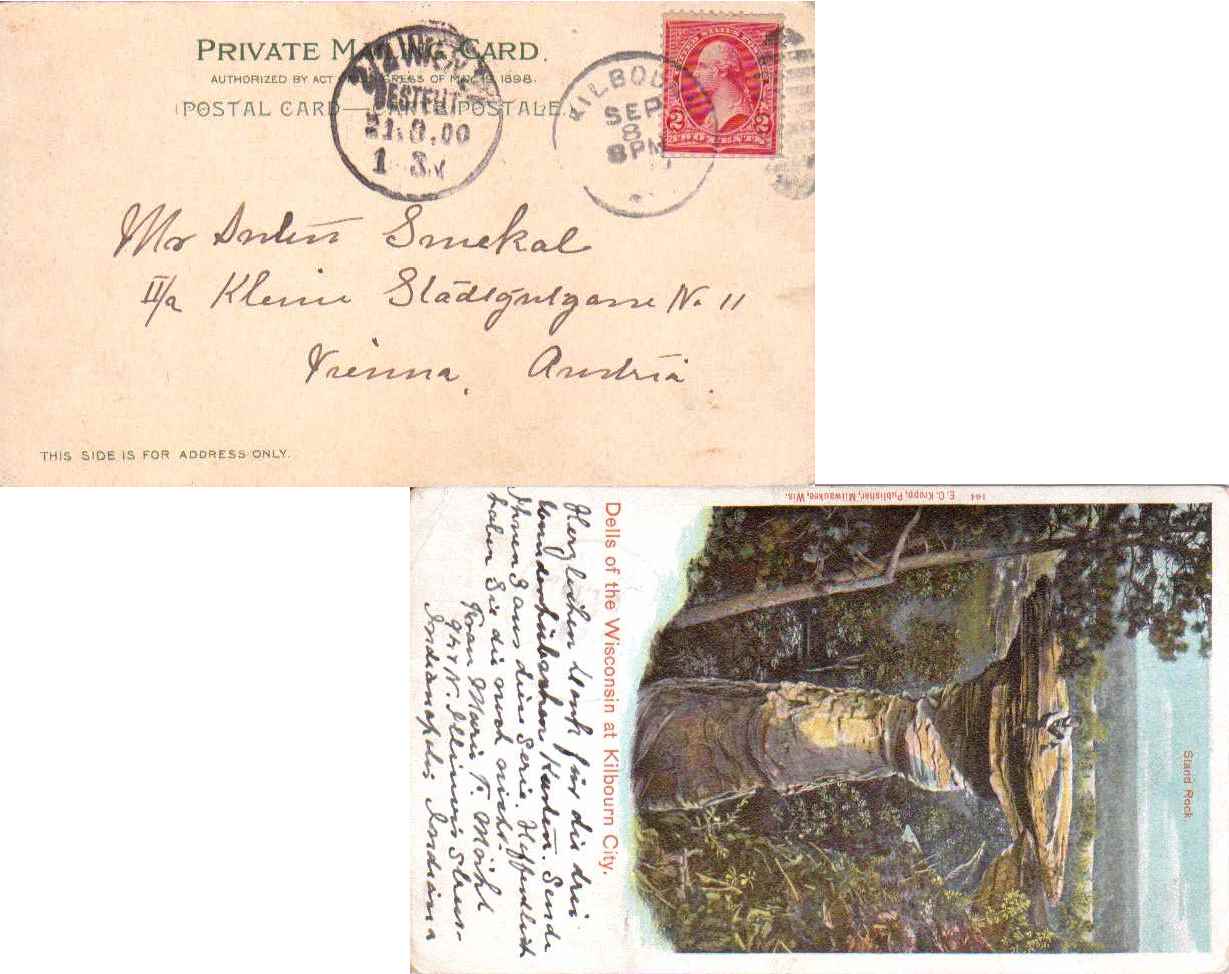 PRIVATE MAILING CARD.
AUTHORIZED BY ACT CONGRESS OF MAY 19, 1898.
(POSTAL CARD—CARTE POSTALE.)
WIEN
BESTELLT
.9.00
KILBOU
SEP
8
8 PM
2 2
TWO CENTS
Mr Anton Smekal
II/a Kleine Stadtgutgasse No 11
Vienna, Austria.
THIS SIDE IS FOR ADDRESS ONLY.
164 E. C. Kropp, Publisher, Milwaukee, Wis.
Stand Rock
Dells of the Wisconsin at Kilbourn City.
Herzlichen Dank für die drei
wunderhübschen Karten. Sende
Ihnen 3 aus diese Serie. Hoffendlich
haben Sie die noch nicht.
Frau Marie T. Möhl
N. Illinois Street
Indianapolis, Indiana